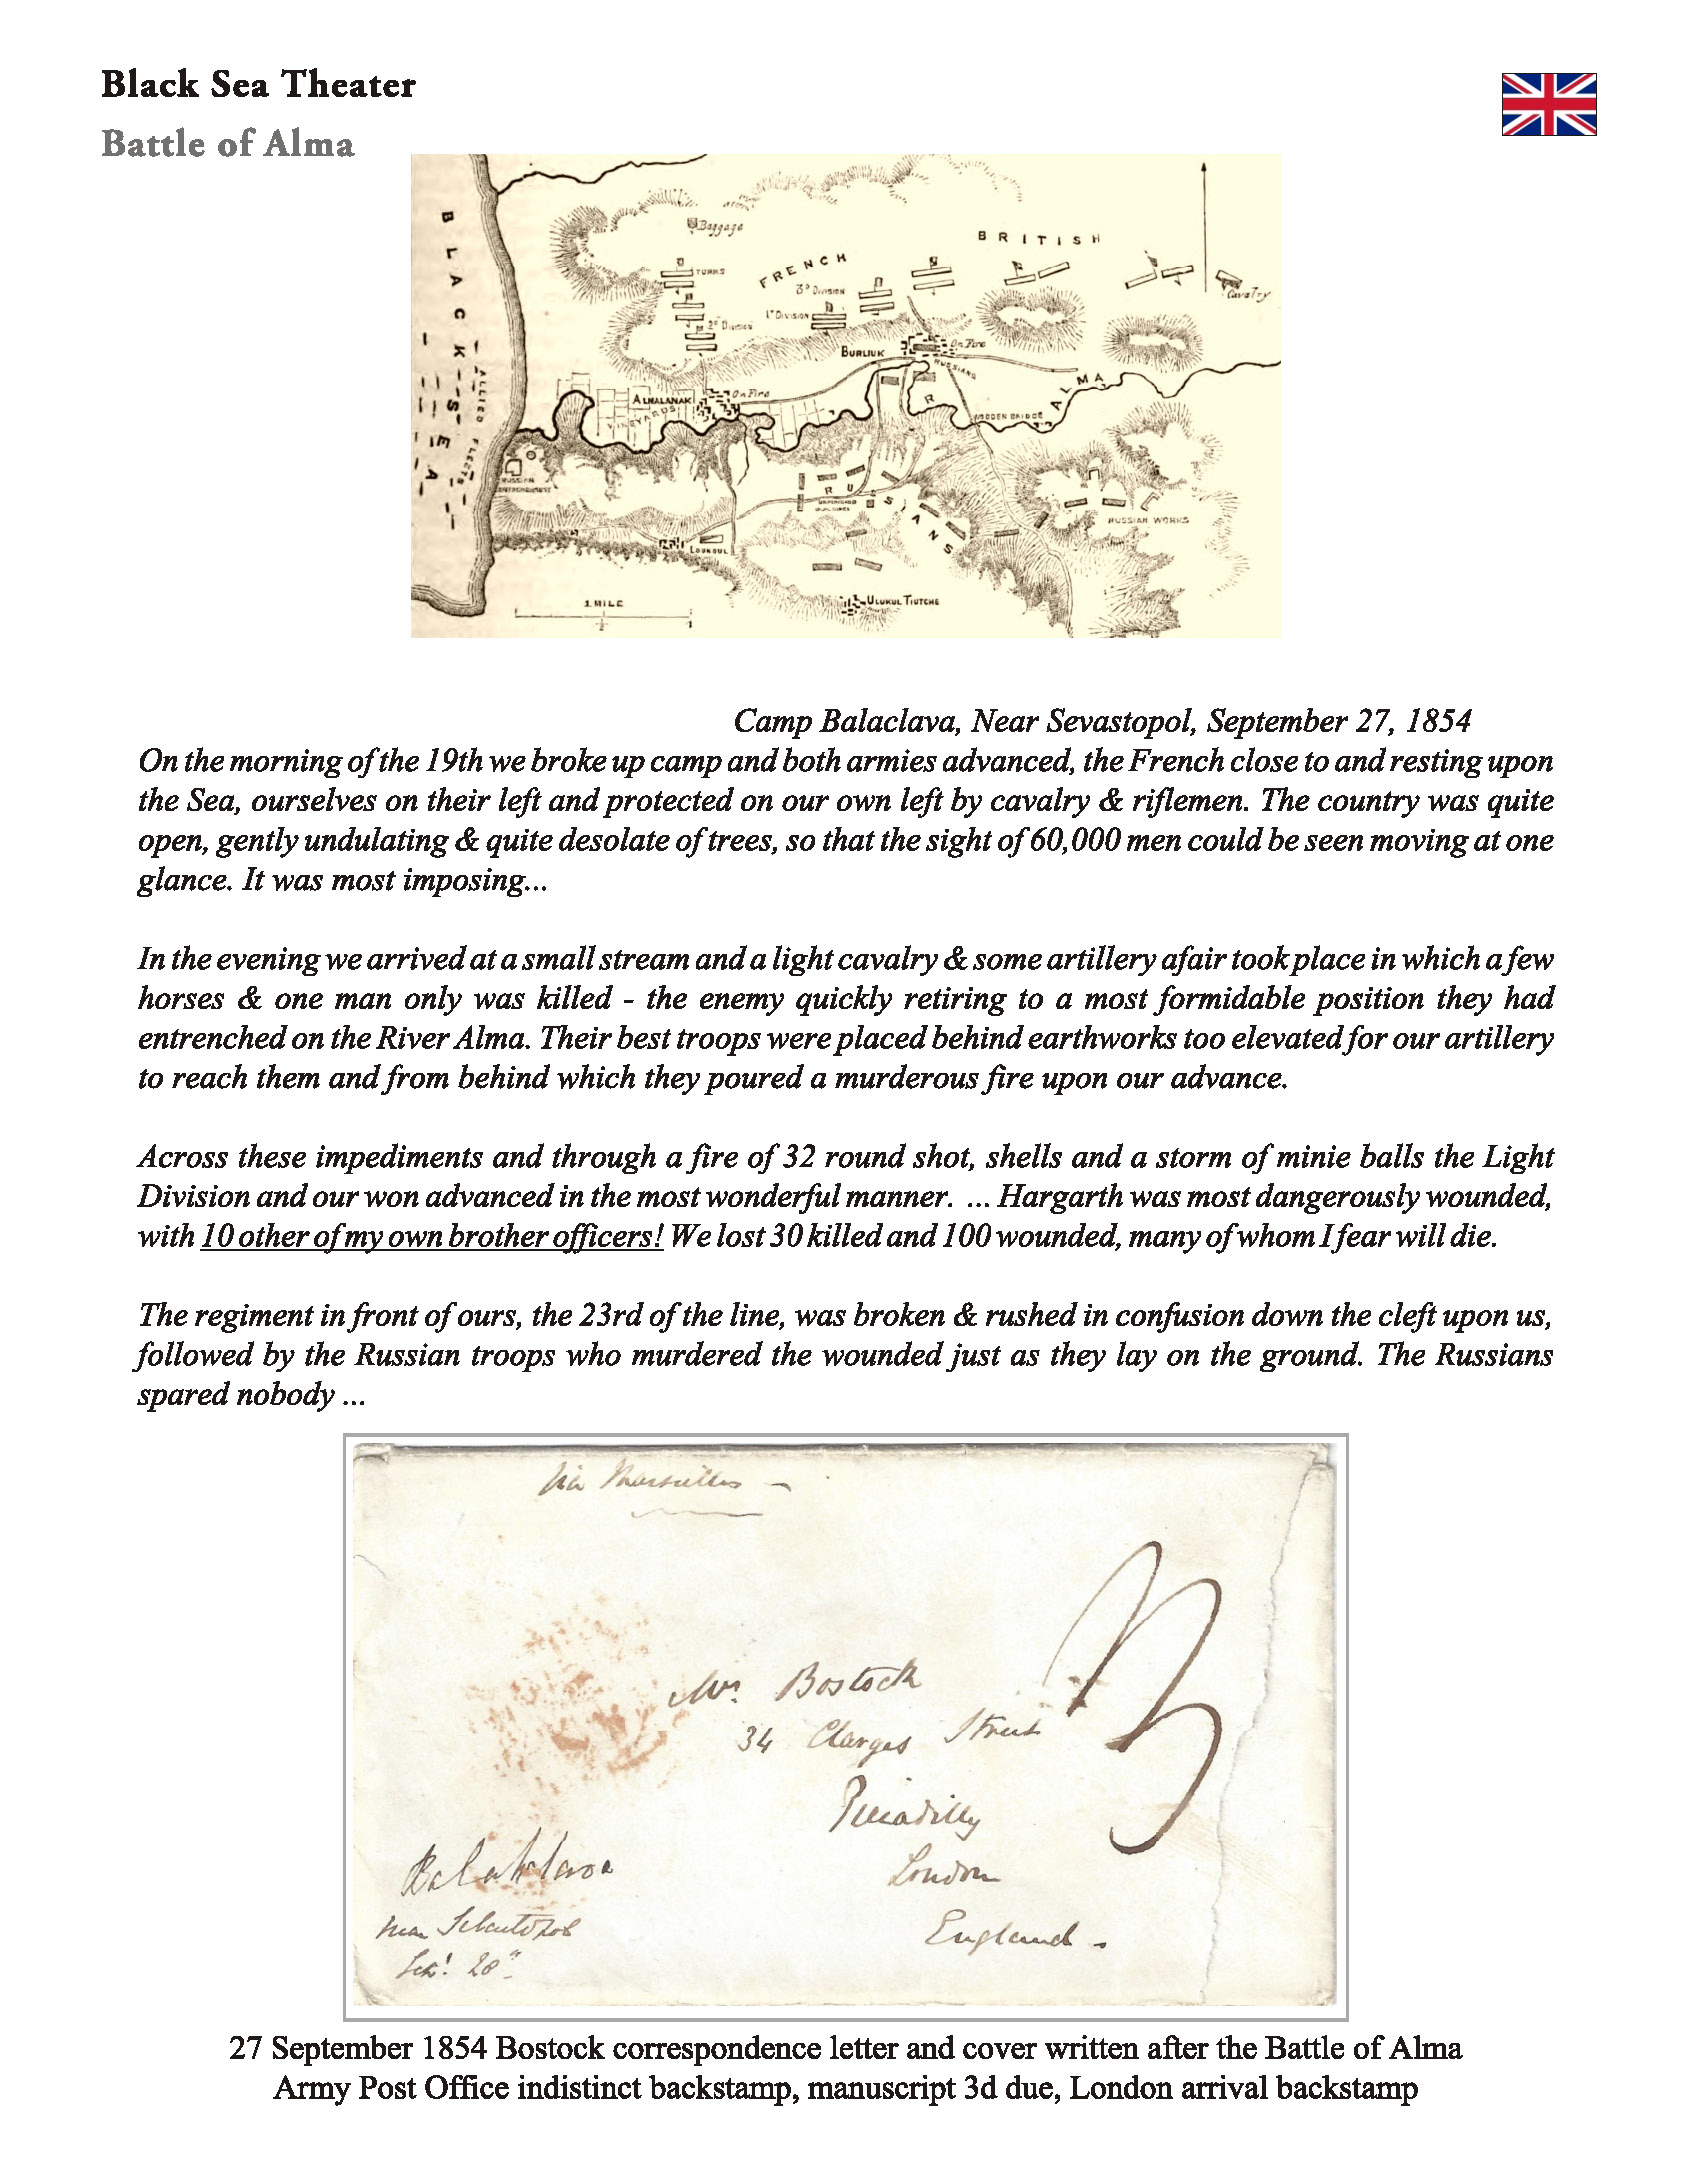 Black Sea Theater
Battle of Alma
BLACK SEA
ALLIED FLEETS
Baggage
TURKS
FRENCH
BRITISH
3D DIVISION
1ST DIVISION
2D DIVISION
Cavalry
BURLIUK
On Fire
RUSSIANS
ALMALANAK
On Fire
VINEYARDS
R. ALMA
WOODEN BRIDGE
RUSSIAN
ENTRENCHMENT
RUSSIANS
RUSSIAN WORKS
LOUKOUL
ULUKUL TIUTCHE
1 MILE
Camp Balaclava, Near Sevastopol, September 27, 1854
On the morning of the 19th we broke up camp and both armies advanced, the French close to and resting upon
the Sea, ourselves on their left and protected on our own left by cavalry & riflemen. The country was quite
open, gently undulating & quite desolate of trees, so that the sight of 60,000 men could be seen moving at one
glance. It was most imposing...
In the evening we arrived at a small stream and a light cavalry & some artillery afair took place in which a few
horses & one man only was killed - the enemy quickly retiring to a most formidable position they had
entrenched on the River Alma. Their best troops were placed behind earthworks too elevated for our artillery
to reach them and from behind which they poured a murderous fire upon our advance.
Across these impediments and through a fire of 32 round shot, shells and a storm of minie balls the Light
Division and our won advanced in the most wonderful manner. ... Hargarth was most dangerously wounded,
with 10 other of my own brother officers! We lost 30 killed and 100 wounded, many of whom I fear will die.
The regiment in front of ours, the 23rd of the line, was broken & rushed in confusion down the cleft upon us,
followed by the Russian troops who murdered the wounded just as they lay on the ground. The Russians
spared nobody ...
Via Marseilles -
3
Mrs Bostock
34 Clarges Street
Piccadilly
London
England -
Balaklava
near Sebastopol
Sep! 28"
27 September 1854 Bostock correspondence letter and cover written after the Battle of Alma
Army Post Office indistinct backstamp, manuscript 3d due, London arrival backstamp